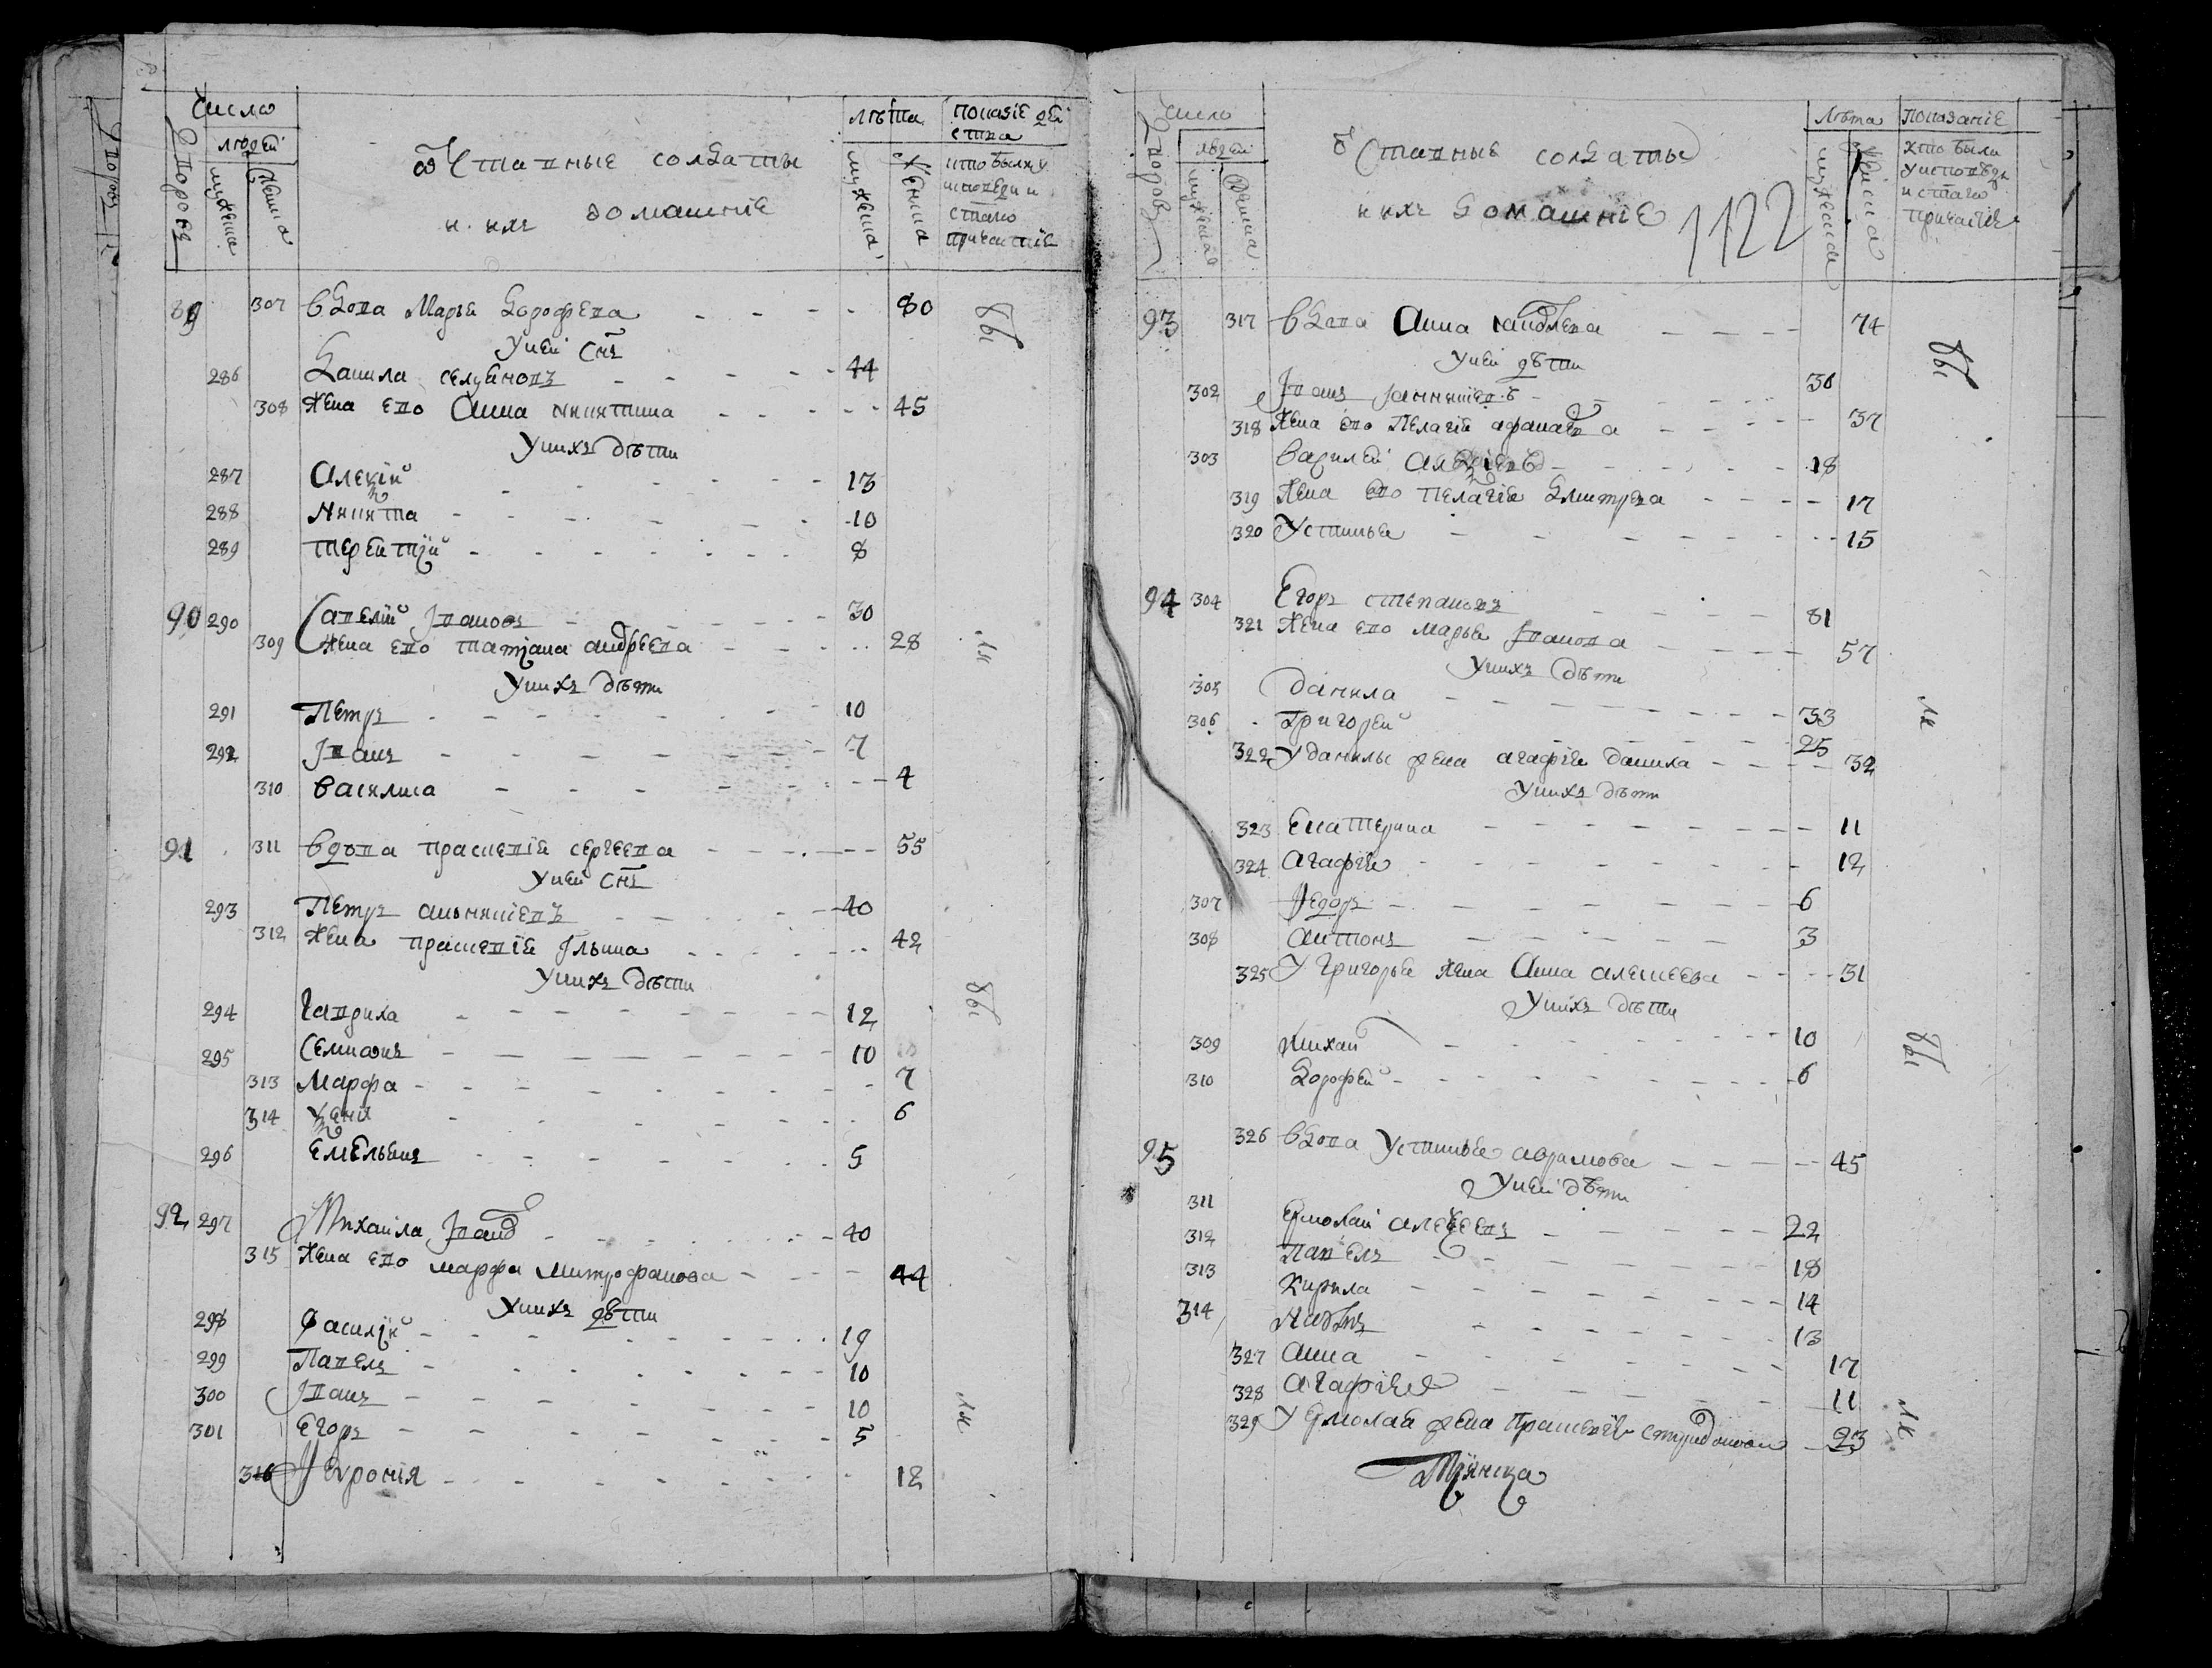 Число
людей
Дворовъ
мужеска
женска
Отставные солдаты
и ихъ домашние
Лѣта
мужеска
женска
Показание дей
ства
кто былъ у
исповеди и
святаго
причастия
89 307 Вдова Марья Дорофева - - - - 80
У ней Снъ
286 Данила Селуановъ - - - - 44
308 Жена ево Анна Никитина - - - - 45
У нихъ дѣти
287 Алексий - - - - 13
288 Никита - - - - 10
289 Терентий - - - - 8
90 290 Савелий Ивановъ - - - - 30
309 Жена ево Татиана Андреева - - - - 28
У нихъ дѣти
291 Петръ - - - - 10
292 Иванъ - - - - 7
310 Василиса - - - - 4
91 311 Вдова Прасковия Сергеева - - - - 55
У ней Снъ
293 Петръ - - - - 40
312 Жена Прасковия Ильина - - - - 42
У нихъ дѣти
294 Гаврила - - - - 12
295 Семионъ - - - - 10
313 Марфа - - - - 7
314 - - - - 6
296 Емельянъ - - - - 5
92 297 Михаила Иванов - - - - 40
315 Жена ево Марфа Митрофанова - - - - 44
У нихъ дѣти
298 Василий - - - - 19
299 Павелъ - - - - 10
300 Иванъ - - - - 10
301 Егоръ - - - - 5
316 Февронiя - - - - 12
Число
людей
Дворовъ
мужеска
женска
Отставные солдаты
и ихъ домашние
1122
Лѣта
мужеска
женска
Показание
кто были
у исповеди
и стаго
причастия
93 317 Вдова Анна - - - - 74
У ней дѣти
302 Иванъ - - - - 30
318 Жена ево Пелагия Афанасева - - - - 37
303 Василей - - - - 18
319 Жена ево Пелагия Дмитрева - - - - 17
320 Устинья - - - - 15
94 304 Егоръ Степановъ - - - - 81
321 Жена ево Марья Иванова - - - - 57
У нихъ дѣти
305 Данила - - - - 33
306 Григорей - - - - 25
322 У Данилы жена Агафия - - - - 32
У нихъ дѣти
323 Екатерина - - - - 11
324 Агафия - - - - 12
307 Федоръ - - - - 6
308 Антонъ - - - - 3
325 У Григорья жена Анна Алексеева - - - - 31
У нихъ дѣти
309 Михай - - - - 10
310 Дорофей - - - - 6
95 326 Вдова Устинья Аврамова - - - - 45
У ней дѣти
311 Ермолай Алексеевъ - - - - 22
312 Павелъ - - - - 18
313 Кирила - - - - 14
314 - - - - 13
327 Анна - - - - 17
328 Агафия - - - - 11
329 У Ермолая жена Прасковия - - - - 23